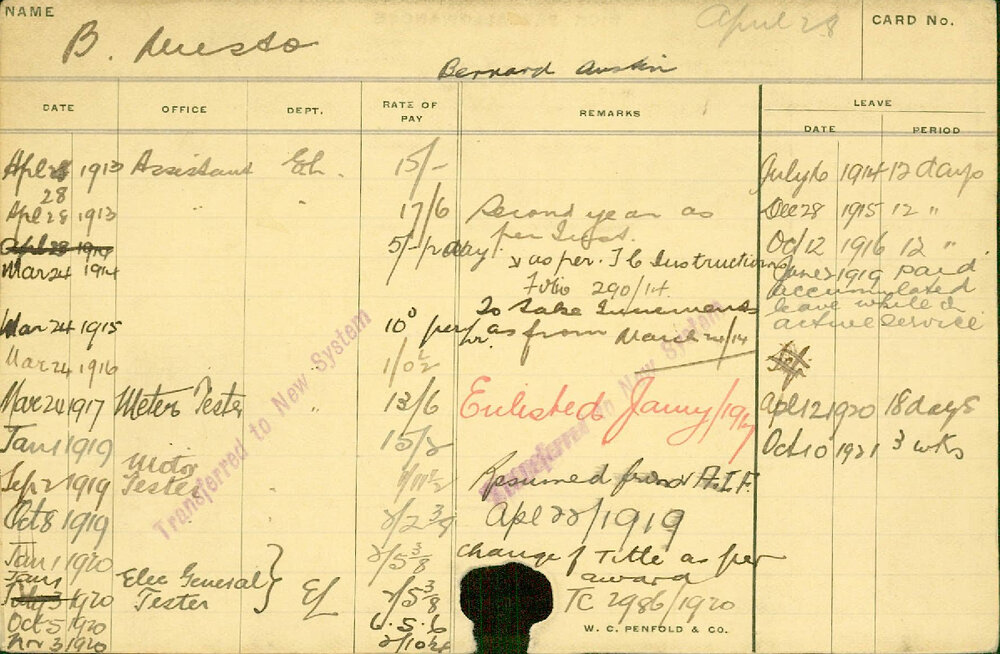 NAME
B. Mesto
Bernard Austin
April 28
CARD No.
DATE OFFICE DEPT. RATE OF PAY REMARKS LEAVE
DATE PERIOD
Apl 28 1913 Assistant EL. 15/- July 6 1914 12 days
28
Apl 28 1913 " " 17/6 Second year as Dec 28 1915 12 "
per Inst.
Apl 28 1914 5/- p day Oct 12 1916 12 "
Mar 24 1914 as per. T C Instructions June 2 1919 paid
Folio 290/14. accumulated
To take Increments leave while on
Mar 24 1915 10" per hr. as from March 24/14 active service
Mar 24 1916 " 1/0½
Mar 24 1917 Meter Tester " 13/6 Enlisted Janry/1917 Apl 12 1920 18 days
Jan 1 1919 15/2 Oct 10 1921 3 wks
Motor
Sep 2 1919 Tester Resumed from A.I.F.
Oct 8 1919 2/2 3/8 Apl 22/1919
Jan 1 1920 2/5 3/8 Change of Title as per
Jan 1 Elec General award
July 3 1920 Tester EL 2/5 3/8 TC 2986/1920
Oct 5 1920 6.5.6
Nov 3 1920
W. C. PENFOLD & CO.
Transferred to New System
Transferred to New System